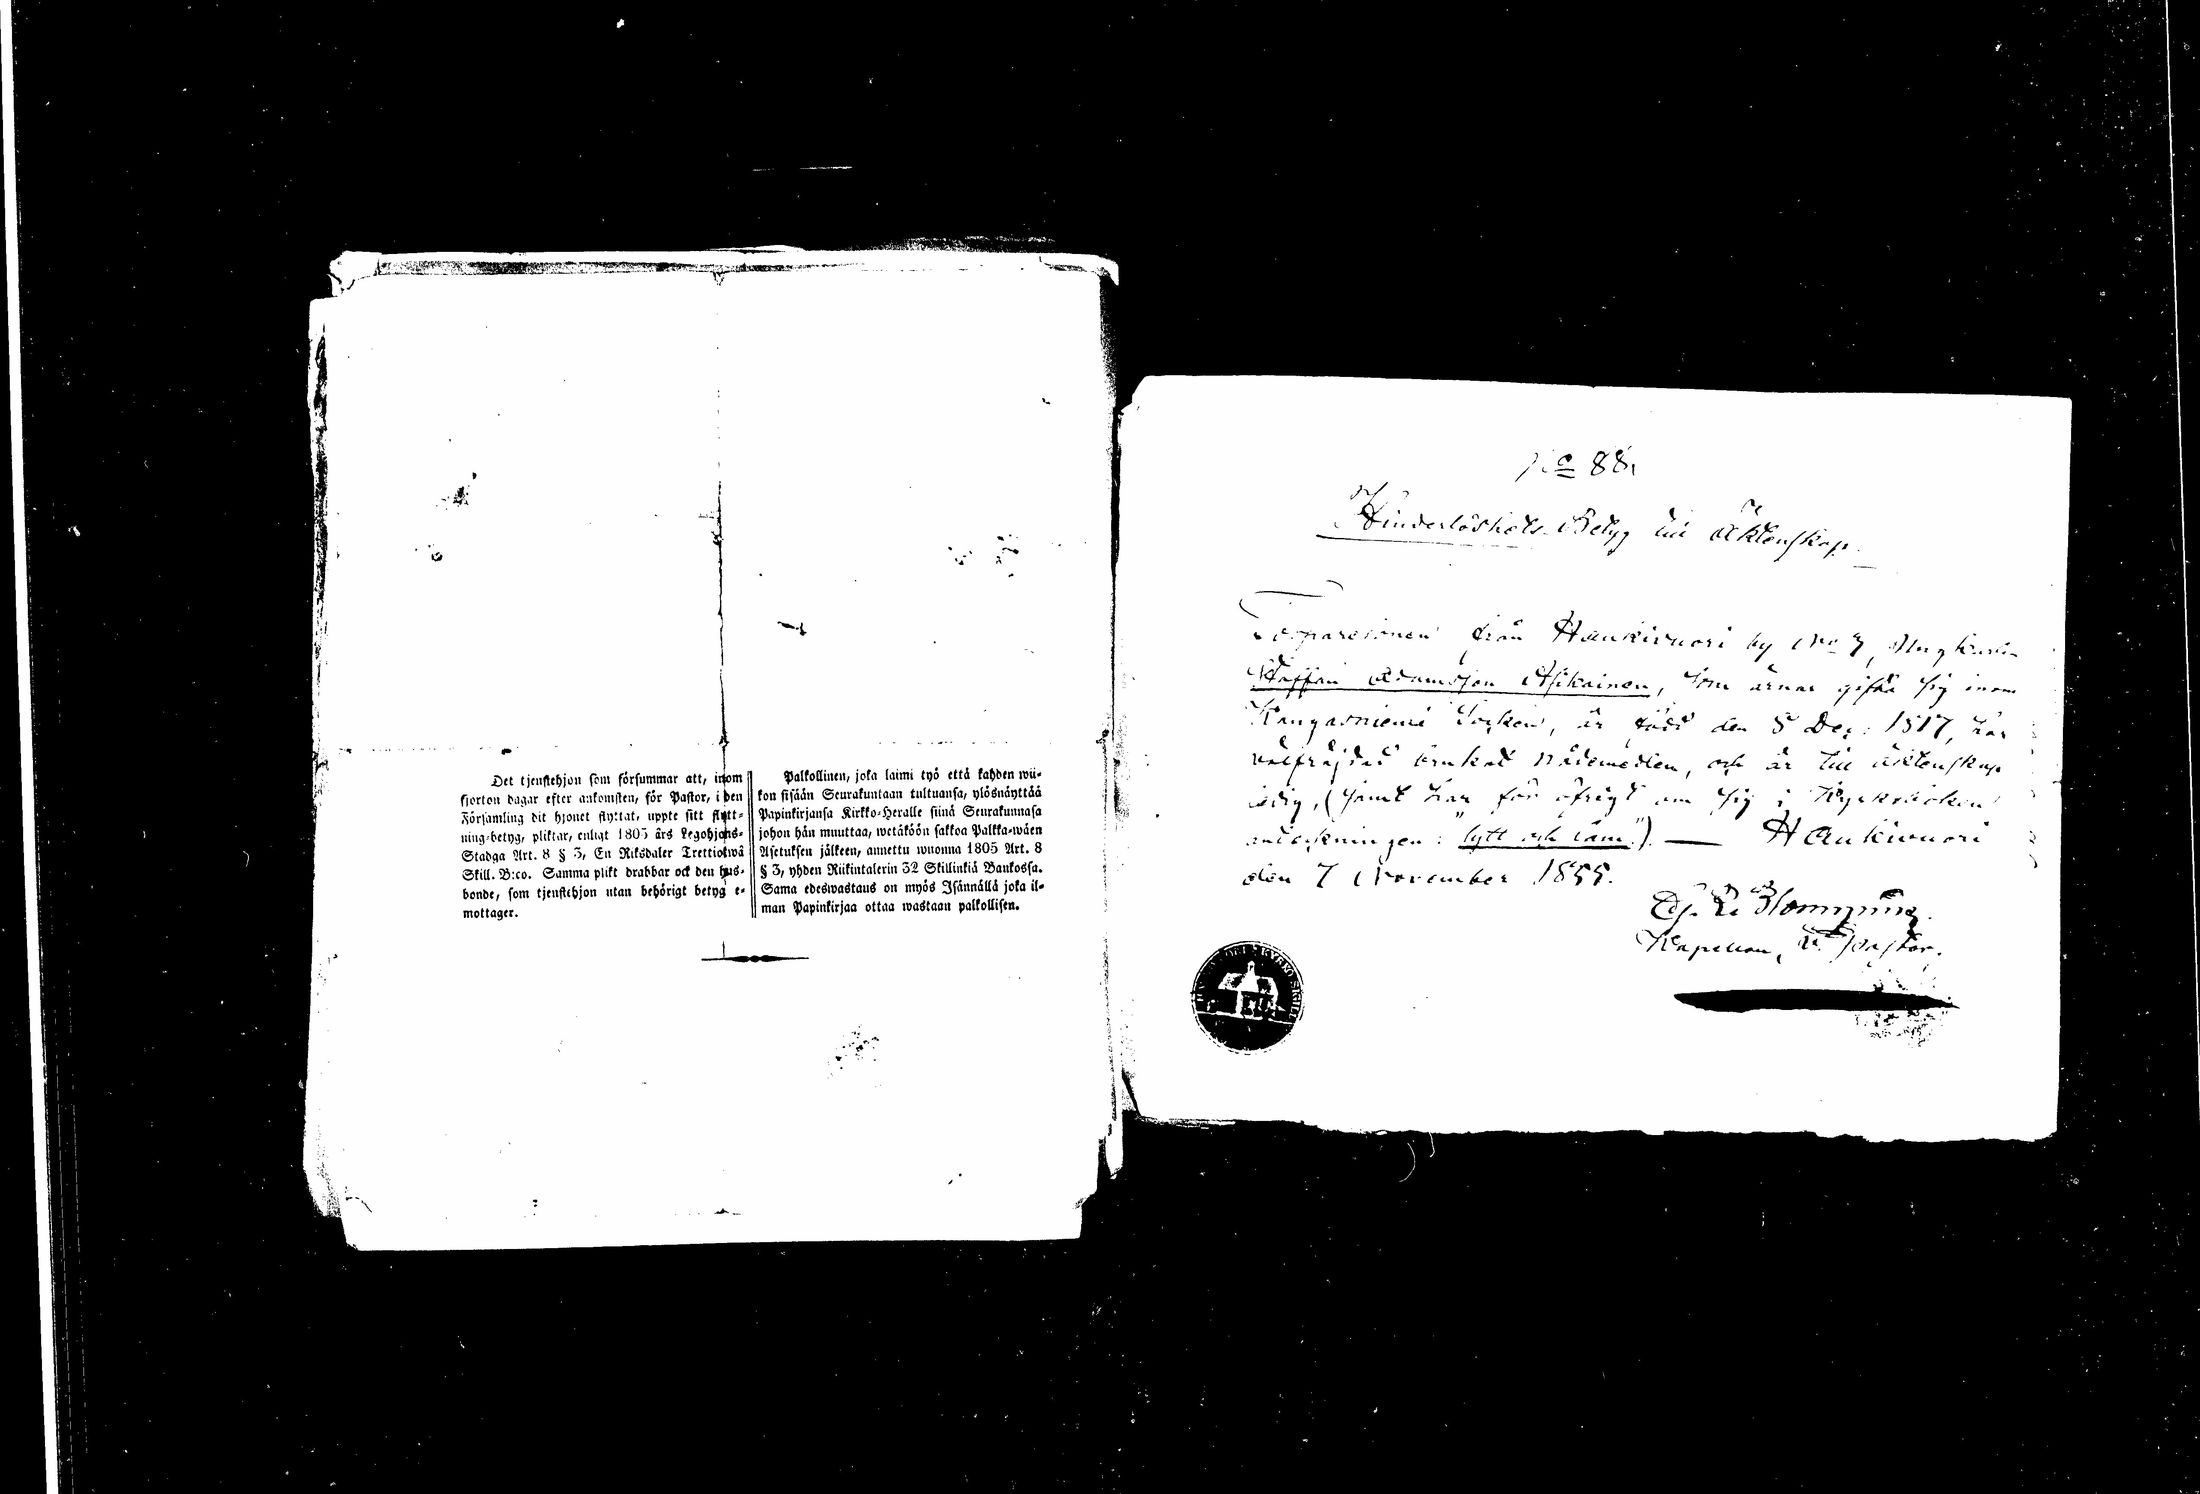 Det tjenstehjon som försummar att, inom
fjorton dagar efter ankomsten, för Pastor, i den
Församling dit hjonet flyttat, uppte sitt flytt-
ning-betyg, pliktar, enligt 1805 års Legohjons-
Stadga Art. 8 § 3, En Riksdaler Trettiotwå
Skill. B:co. Samma plikt drabbar ock den hus-
bonde, som tjenstehjon utan behörigt betyg e-
mottager.
Palkollinen, joka laimi lyö että kahden wii-
kon sisään Seurakuntaan tultuansa, ylösnäyttää
Papinkirjansa Kirkko-Heralle siinä Seurakunnasa
johon hän muuttaa, wetäköön sakkoa Palkka-wäen
Asetuksen jälkeen, annettu wuonna 1805 Art. 8
§ 3, yhden Riikintalerin 32 Skillinkiä Bankossa.
Sama edeswastaus on myös Isännällä joka il-
man Papinkirjaa ottaa wastaan palkollisen.
No 88.
Hinderlöshets-Betyg till Äktenskap.
från Haukivuori by No 7, Ungkarlen
Staffan Adamsson Asikainen, som ärnar gifta sig inom
Kangasniemi Socken, är född den 8 Dec. 1817, har
välfrejdad brukat nådemedlen, och är till äktenskap
ledig, (samt har för öfrigt om sig i Kyrkoboken
anteckningen: "lytt och lam".). — Haukivuori
den 7 November 1855.
Blomqvist.
Kapellan, v. Pastor.